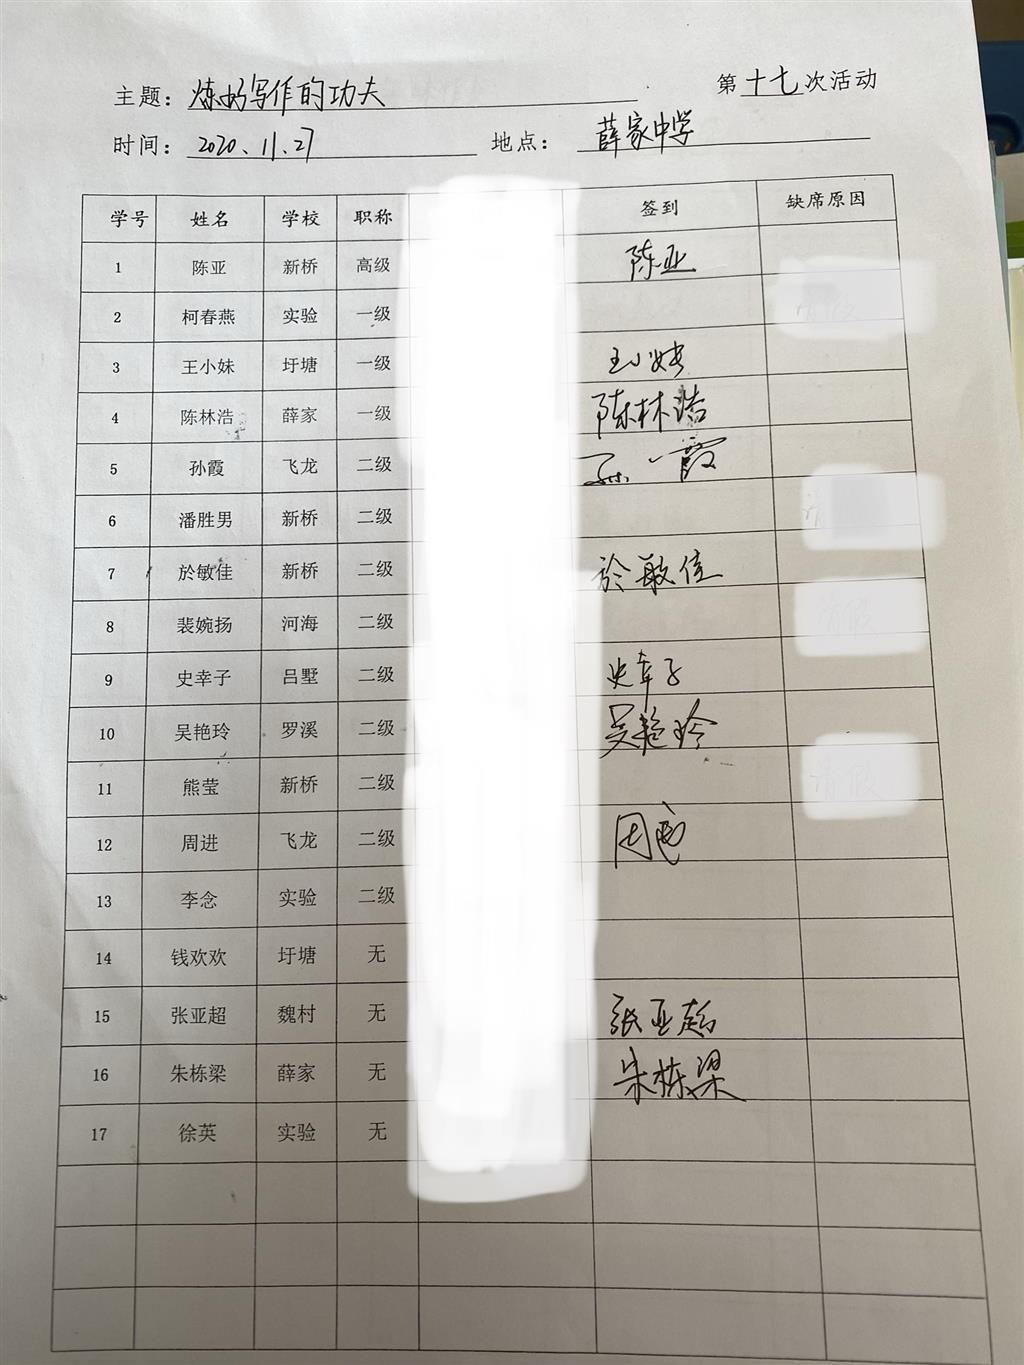 主题：炼好写作的功夫 第十七次活动
时间：2020.11.27 地点：薛家中学
学号 姓名 学校 职称 签到 缺席原因
1 陈亚 新桥 高级 陈亚
2 柯春燕 实验 一级
3 王小妹 圩塘 一级 王小妹
4 陈林浩 薛家 一级 陈林浩
5 孙霞 飞龙 二级 孙霞
6 潘胜男 新桥 二级
7 於敏佳 新桥 二级 於敏佳
8 裴婉扬 河海 二级 请假
9 史幸子 吕墅 二级 史幸子
10 吴艳玲 罗溪 二级 吴艳玲
11 熊莹 新桥 二级 请假
12 周进 飞龙 二级
13 李念 实验 二级
14 钱欢欢 圩塘 无
15 张亚超 魏村 无 张亚超
16 朱栋梁 薛家 无 朱栋梁
17 徐英 实验 无